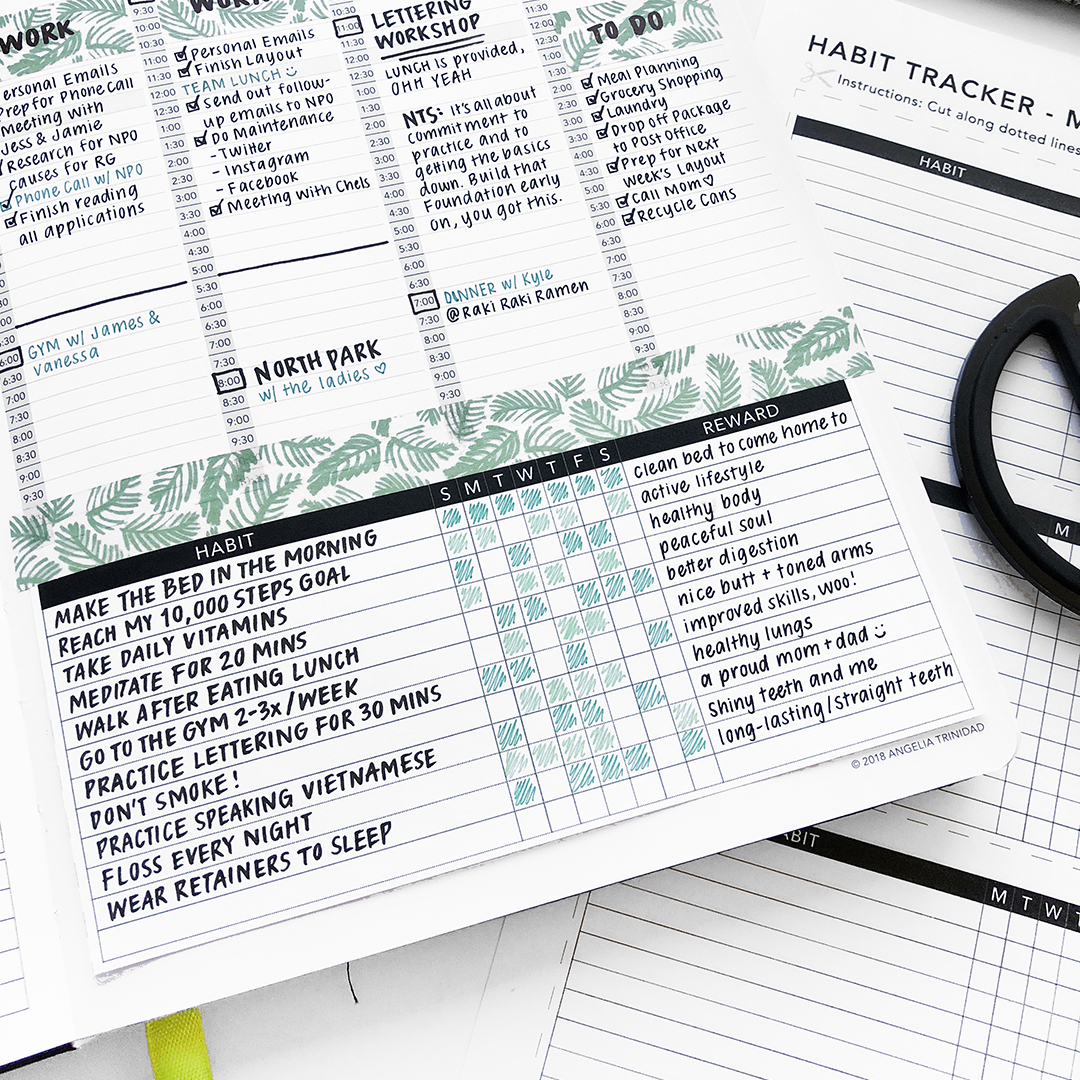 WORK
Personal Emails
Prep for Phone Call
Meeting with
Jess & Jamie
Research for NPO
causes for RG
Phone Call w/ NPO
Finish reading
all applications
6:00
GYM w/ James &
vanessa
6:30
7:00
7:30
8:00
8:30
9:00
9:30
WORK
10:30
11:00
11:30
12:00
12:30
1:00
1:30
2:00
2:30
3:00
3:30
4:00
4:30
5:00
5:30
6:00
6:30
7:00
7:30
8:00
8:30
9:00
9:30
Personal Emails
Finish Layout
TEAM LUNCH
Send out follow-
up emails to NPO
Do Maintenance
- Twitter
- Instagram
- Facebook
Meeting with Chels
NORTH PARK
w/ the ladies ♡
10:30
11:00
11:30
12:00
12:30
1:00
1:30
2:00
2:30
3:00
3:30
4:00
4:30
5:00
5:30
6:00
6:30
7:00
7:30
8:00
8:30
9:00
9:30
LETTERING
WORKSHOP
LUNCH is provided,
OHH YEAH
NTS: it's all about
commitment to
practice and to
getting the basics
down. Build that
Foundation early
on, you got this.
DINNER w/ Kyle
@ Raki Raki Ramen
11:00
11:30
12:00
12:30
1:00
1:30
2:00
2:30
3:00
3:30
4:00
4:30
5:00
5:30
6:00
6:30
7:00
7:30
8:00
8:30
9:00
9:30
TO DO
Meal Planning
Grocery Shopping
Laundry
Drop off Package
to Post Office
Prep for Next
week's Layout
Call Mom ♡
Recycle Cans
HABIT S M T W T F S REWARD
MAKE THE BED IN THE MORNING clean bed to come home to
REACH MY 10,000 STEPS GOAL active lifestyle
TAKE DAILY VITAMINS healthy body
MEDITATE FOR 20 MINS peaceful soul
WALK AFTER EATING LUNCH better digestion
GO TO THE GYM 2-3x/WEEK nice butt + toned arms
PRACTICE LETTERING FOR 30 MINS improved skills, woo!
DON'T SMOKE! healthy lungs
PRACTICE SPEAKING VIETNAMESE a proud mom + dad
FLOSS EVERY NIGHT shiny teeth and me
WEAR RETAINERS TO SLEEP long-lasting/straight teeth
© 2018 ANGELIA TRINIDAD
HABIT TRACKER - M
Instructions: Cut along dotted lines
HABIT
M
M T W T